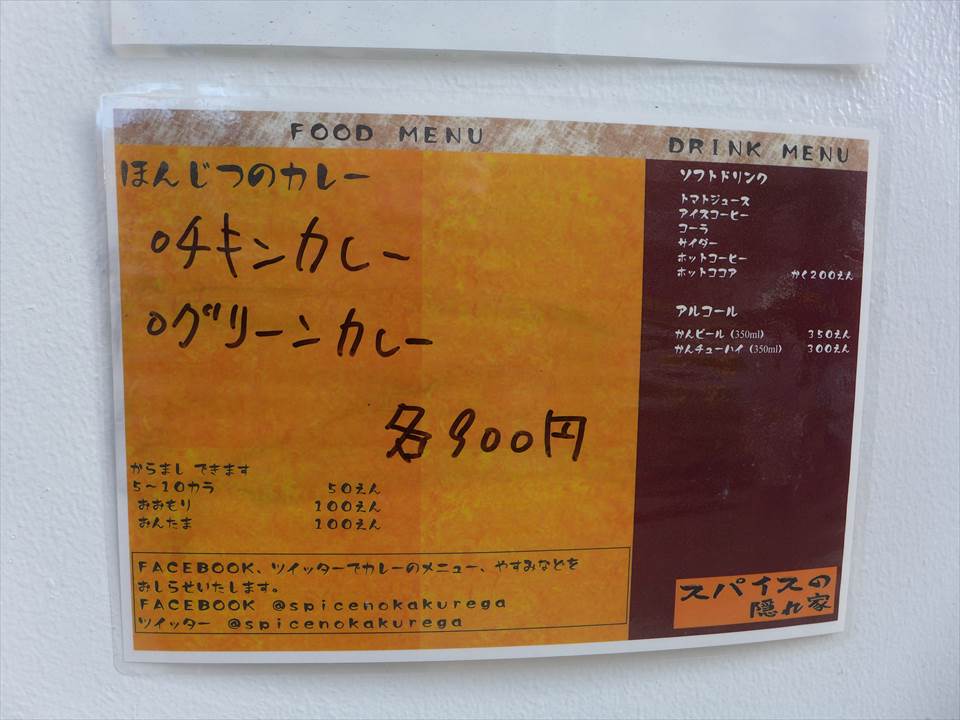 FOOD MENU
ほんじつのカレー
○チキンカレー
○グリーンカレー
各900円
からまし できます
5~10カラ 50えん
おおもり 100えん
おんたま 100えん
FACEBOOK、ツイッターでカレーのメニュー、やすみなどを
おしらせいたします。
FACEBOOK @spicenokakurega
ツイッター @spicenokakurega
DRINK MENU
ソフトドリンク
トマトジュース
アイスコーヒー
コーラ
サイダー
ホットコーヒー
ホットココア かく200えん
アルコール
かんビール (350ml) 350えん
かんチューハイ (350ml) 300えん
スパイスの
隠れ家